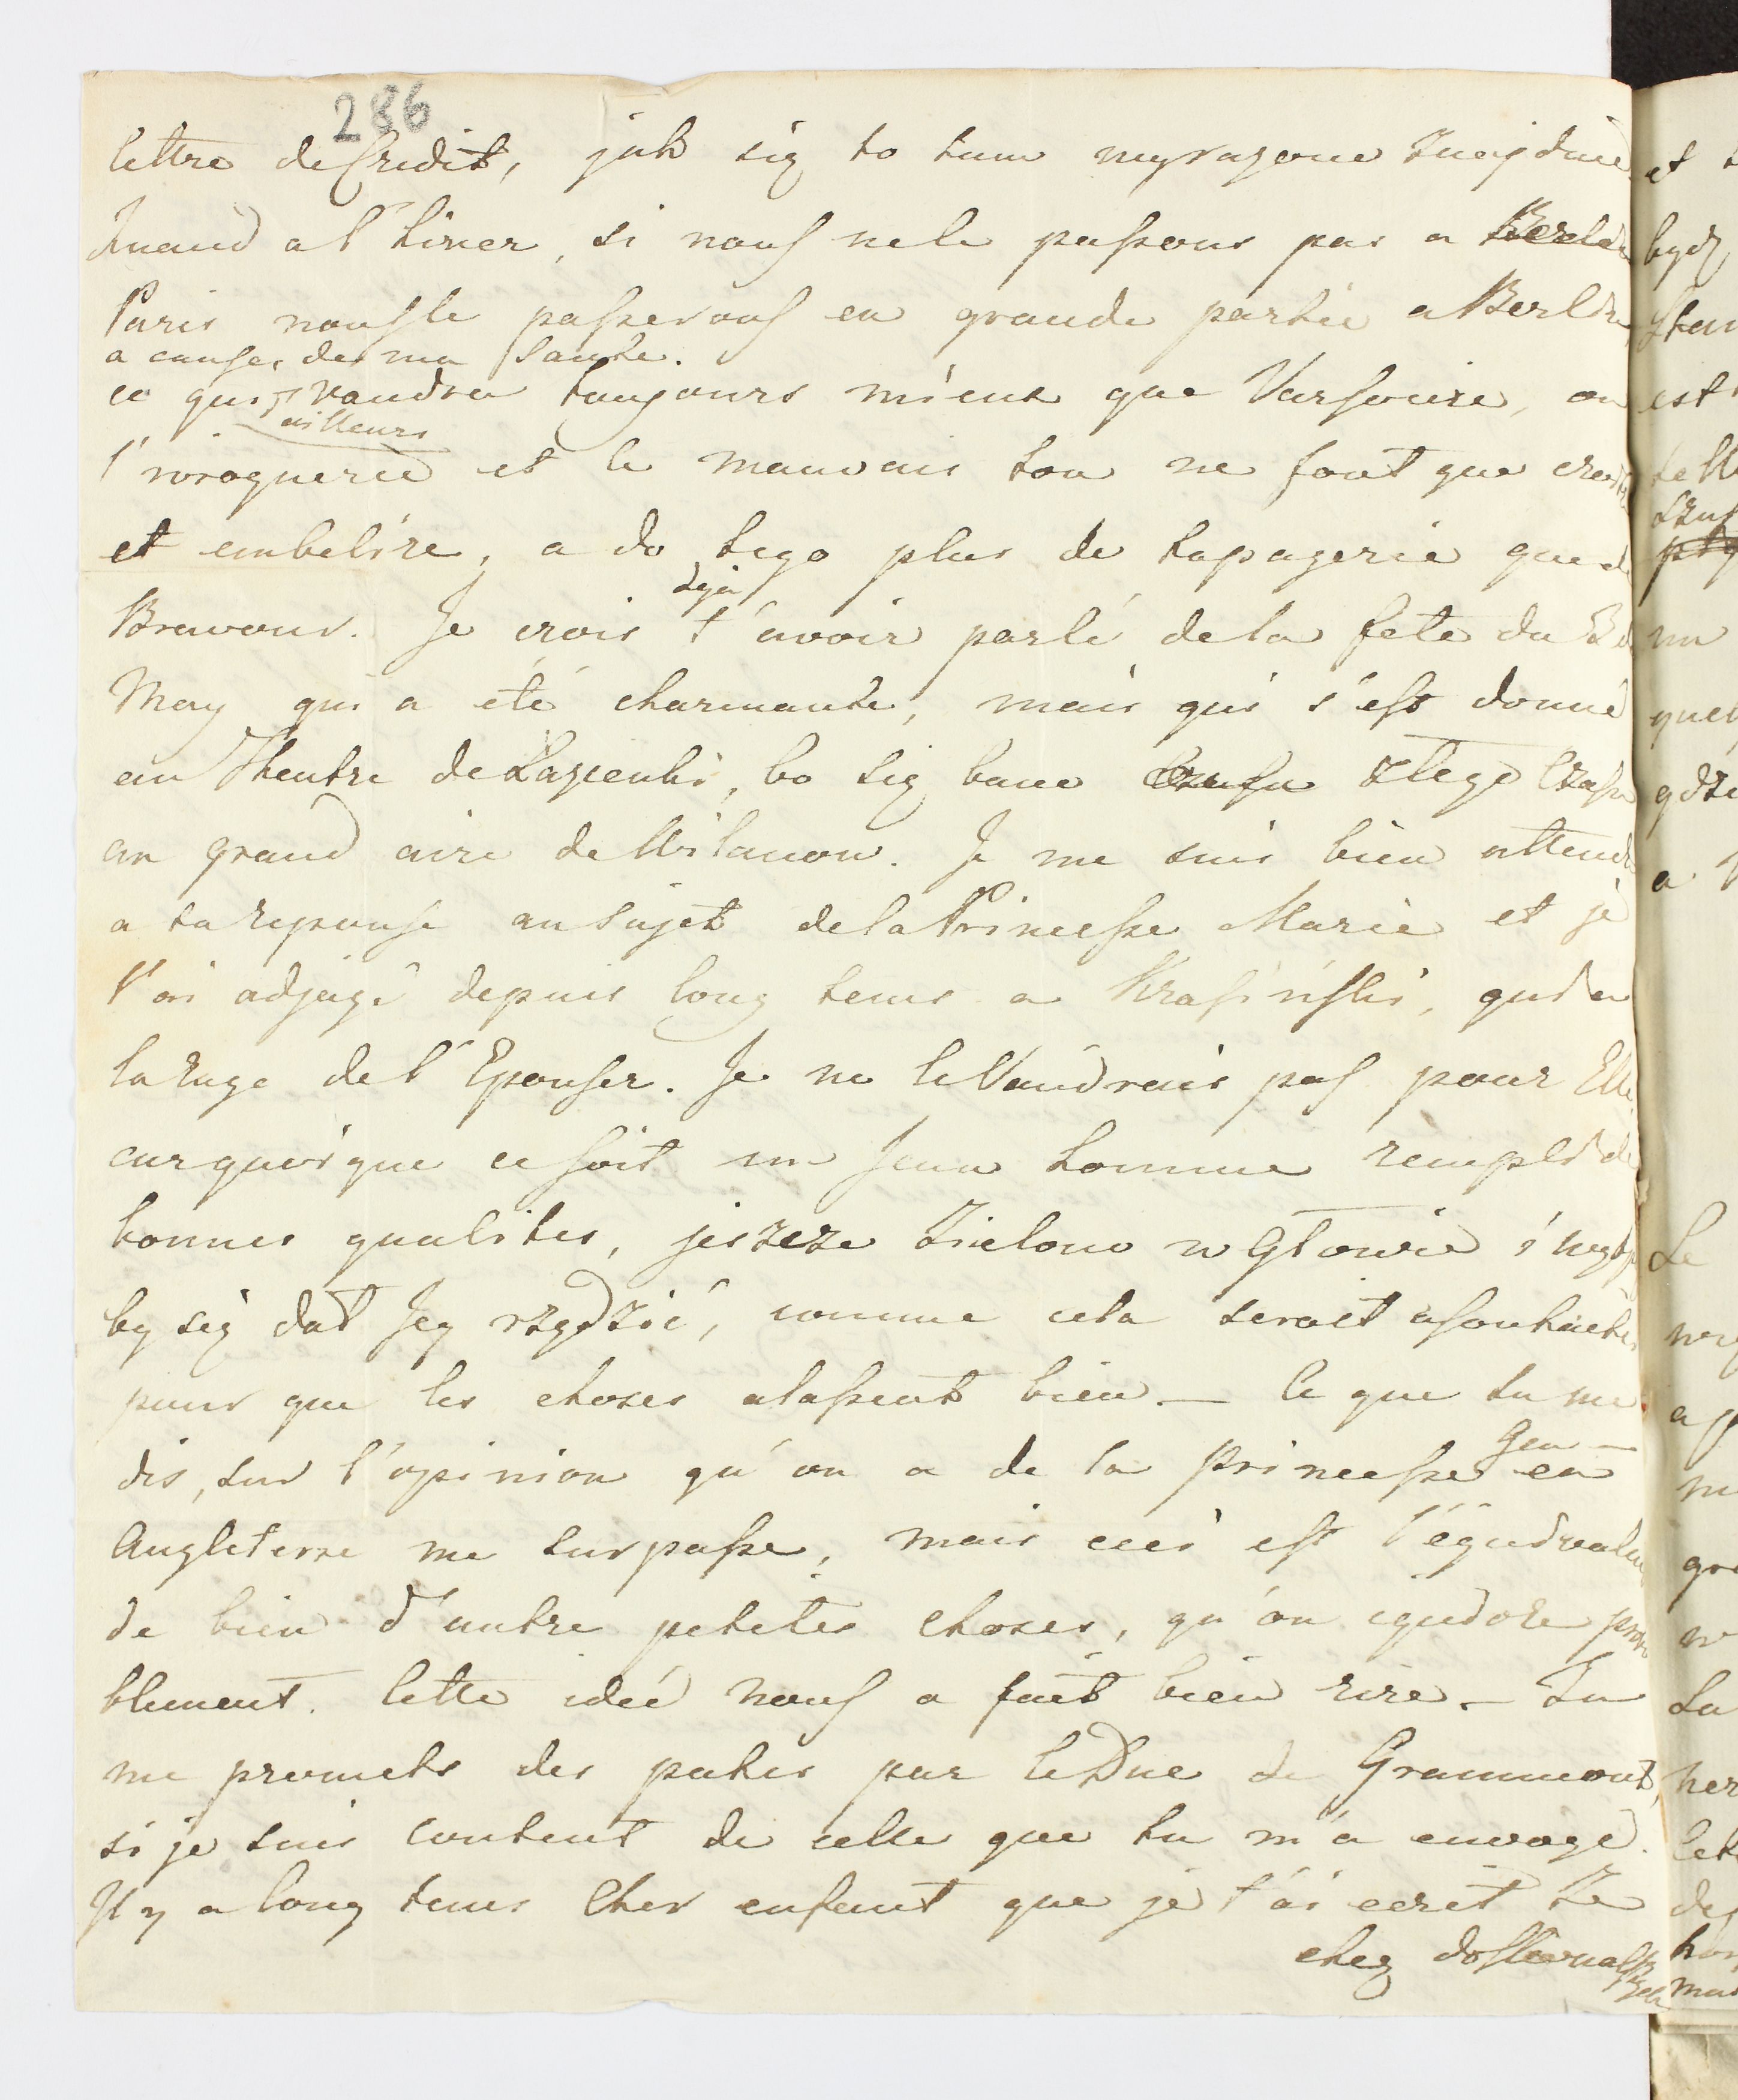 286
lettre de Credit, jak się to tam wyrazone znajduie.
Quand a l'hiver, si nous ne le passons pas a
Paris nousle passerons en grande partie a Berlin
a cause, de ma sante.
ce qui vaudra toujours mieux que Varsovie, ou
ailleurs
l'ivroguerie et le mauvais ton ne font que
et embelire, a do tego plus de tapagerie que de
deja
Bravour. Je crois t'avoir parlé dela fete du 3 de
May qui a été charmante, mais qui s'est donné
au Theatre de Lazienki, bo się bano złego Czasu
au grand aire de Wilanow. Je me suis bien attendu
a ta reponse au sujet dela Princesse Marie et je
l'ai adjugé depuis long tems a Krasinski, qui a
la rage de l'Epouser. Je ne le Vaudrais pas pour Elle
car quoique ce soit un Jeune homme rempli de
bonnes qualites, jeszcze Zielono w Głowie i
by się dał Jey rządzić, comme cela serait a souhaiter
pour que les choses alassent bien. — Ce que tu me
dis, sur l'opinion qu'on a de la princesse en
Angleterre me surpasse, mais ceci est l'equivalent
de bien d'autre petites choses, qu'on
blement. Cette ideé nous a fait bien rire. — Tu
me promets des pates par le Duc de Grammont,
si je suis content de celle que tu m'a envoyé.
Il y a long tems Cher enfant que je t'ai ecrit że
chez